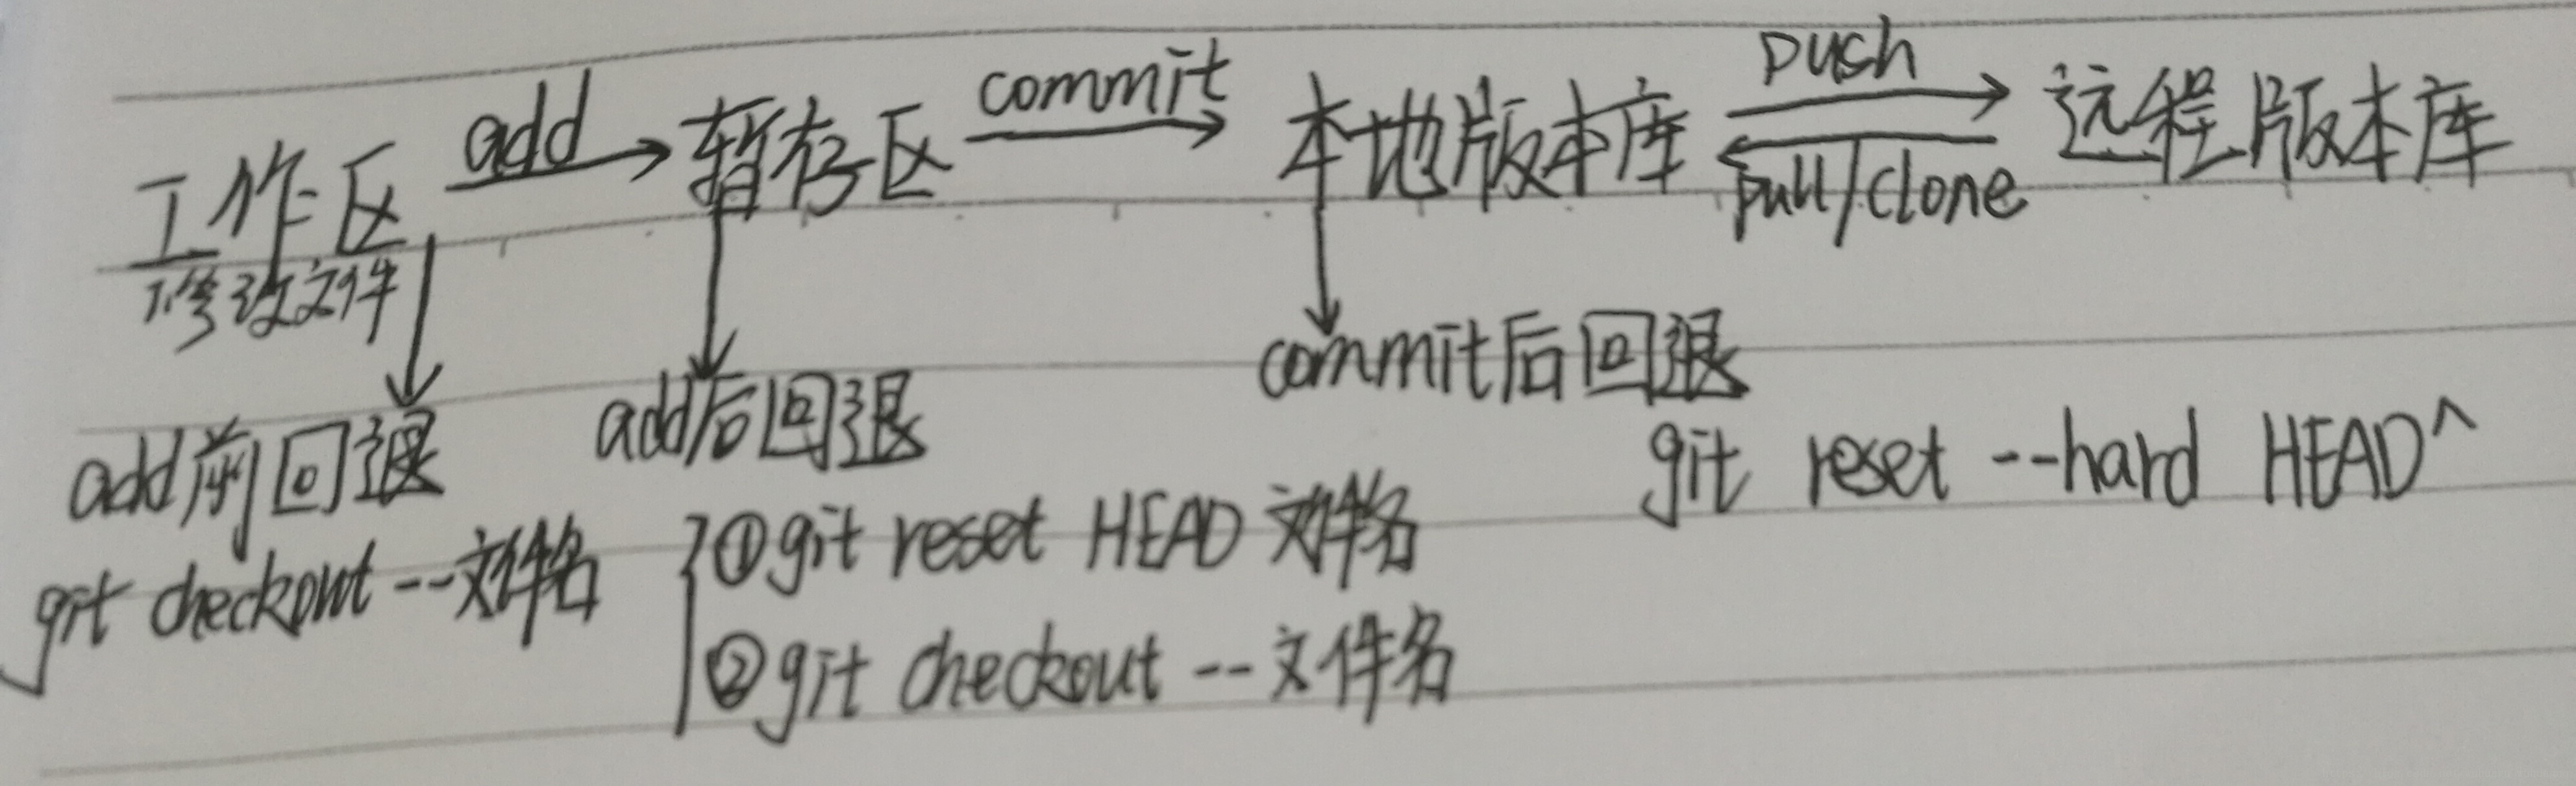 工作区 add 暂存区 commit 本地版本库 push 远程版本库
pull/clone
修改文件
commit后回退
add前回退 add后回退
git reset --hard HEAD^
git checkout --文件名 ①git reset HEAD 文件名
②git checkout -- 文件名